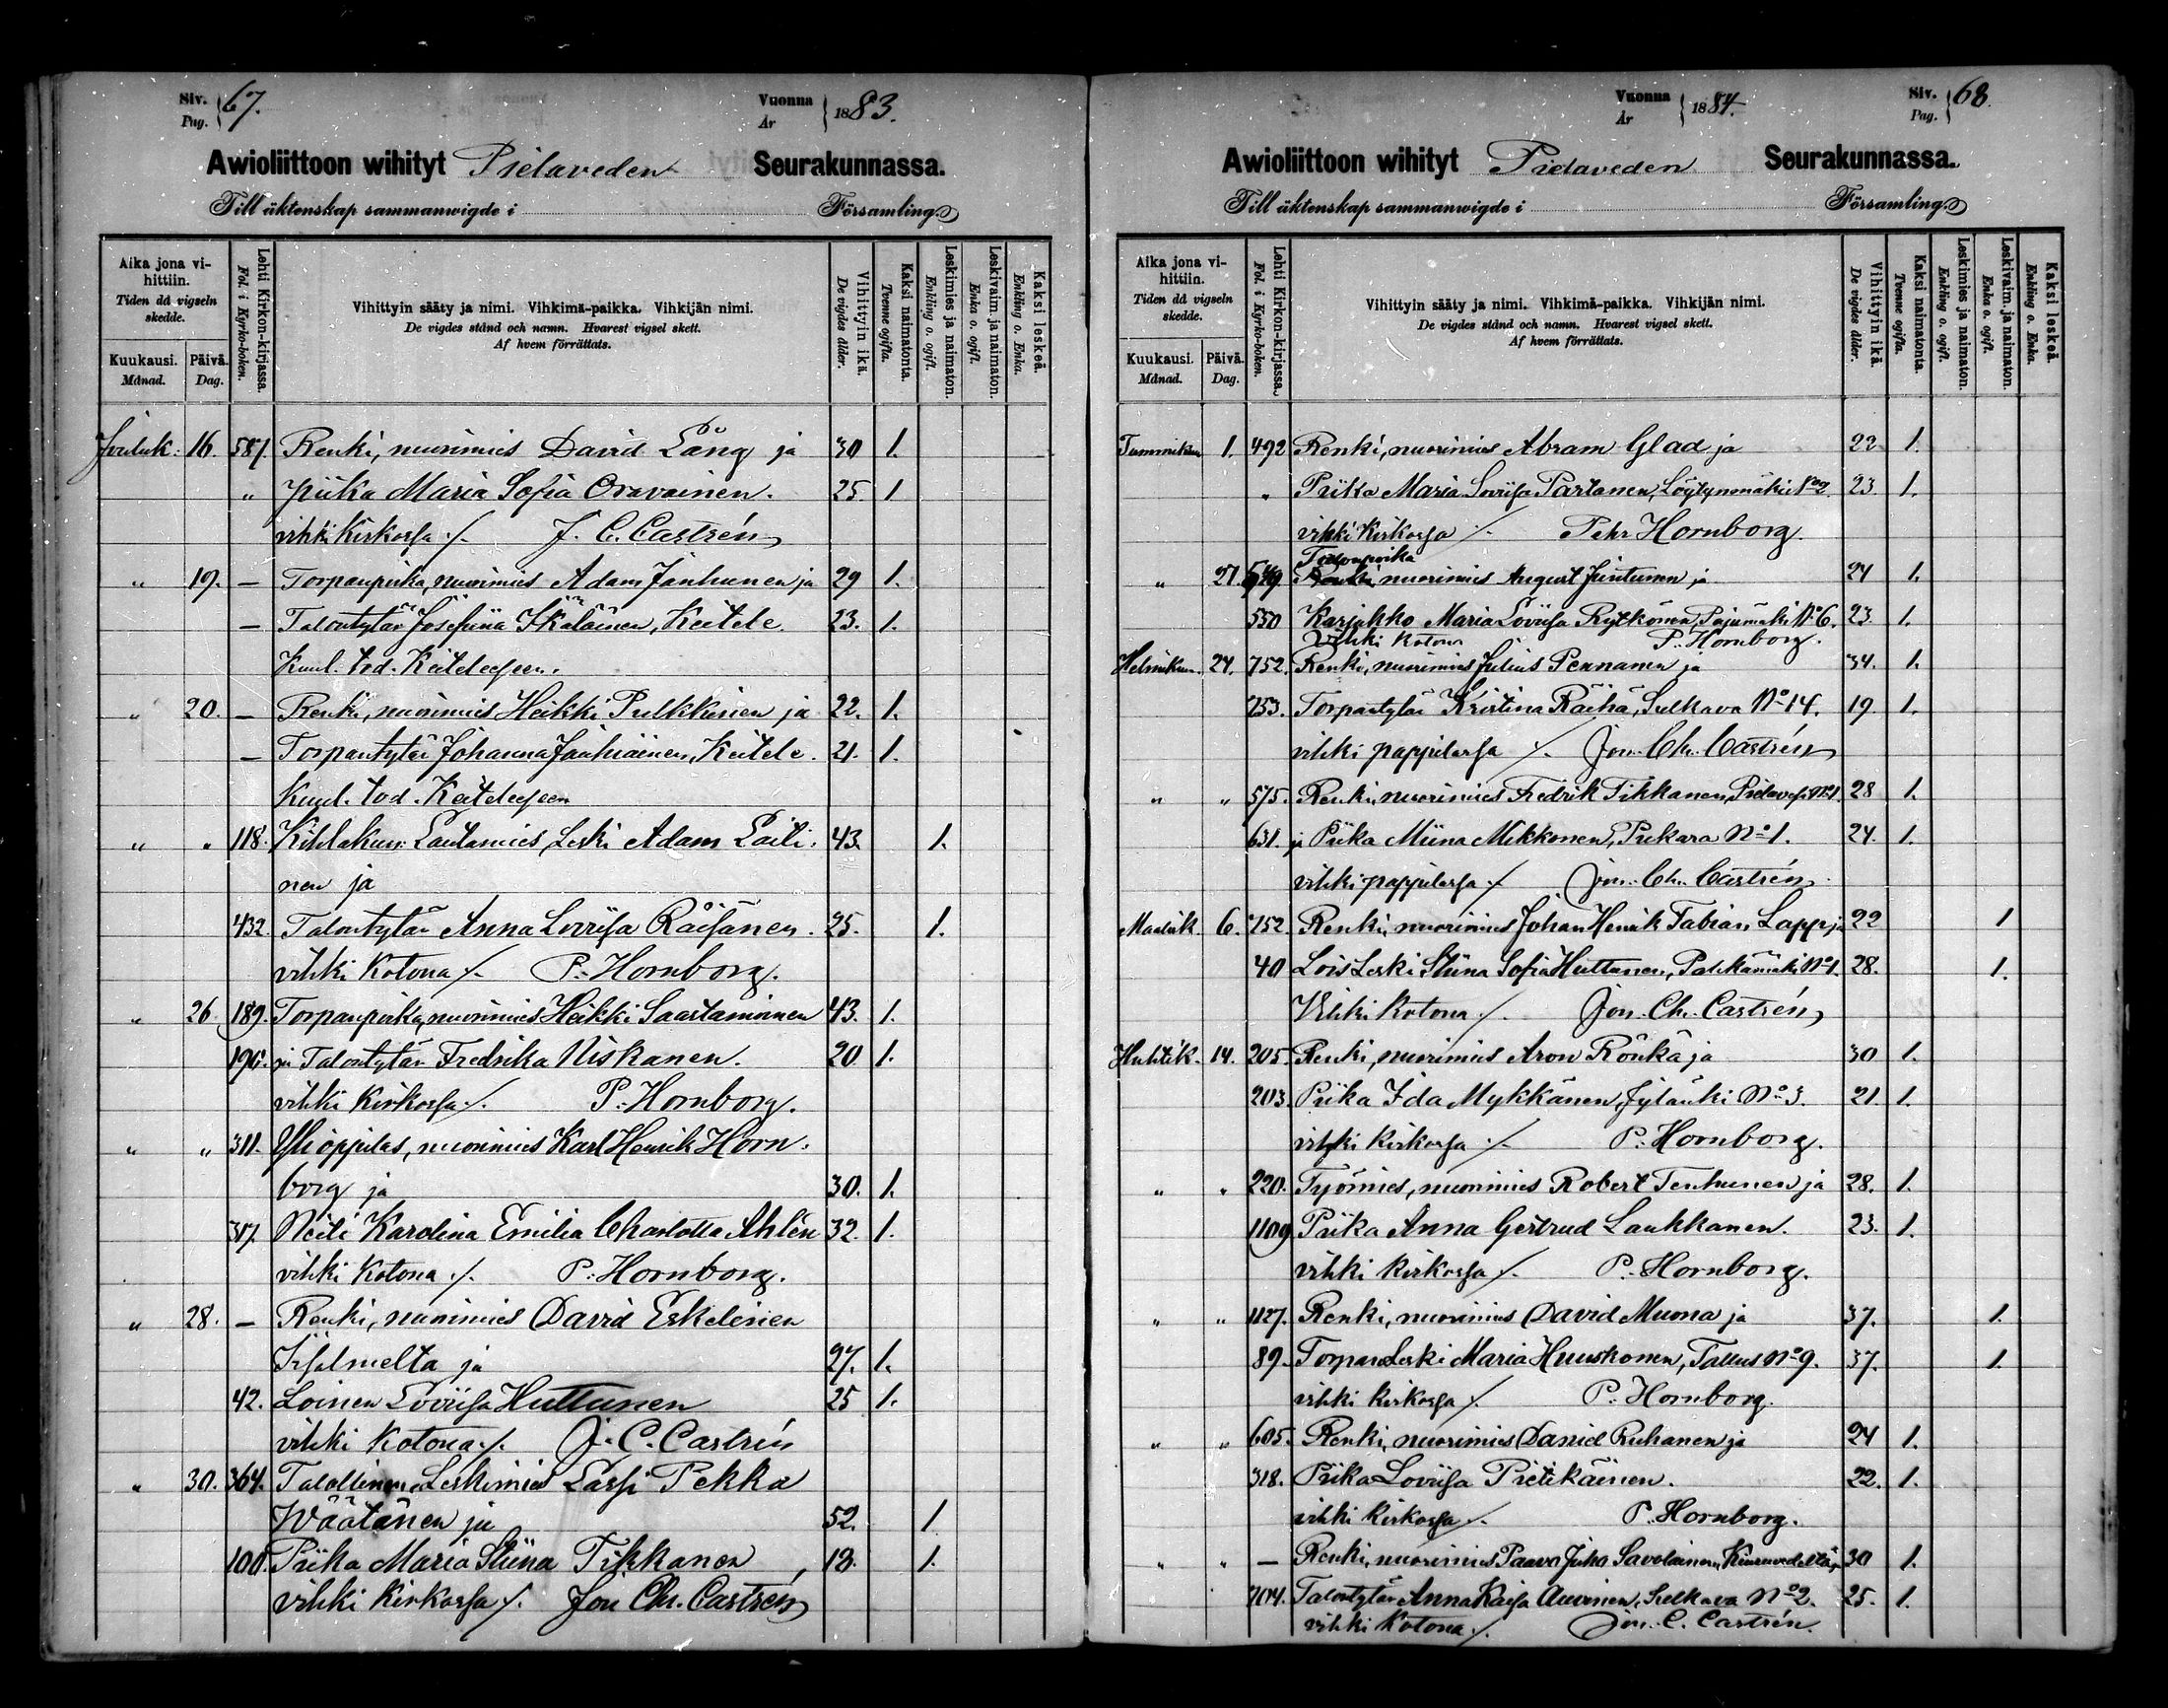 Siv. Pag. 67.
Vuonna År 1883.
Awioliittoon wihityt Pielaveden Seurakunnassa.
Till äktenskap sammanwigde i Församling.
Aika jona vihittiin. Tiden då vigseln skedde.
Kuukausi. Månad.
Päivä. Dag.
Lehti Kirkon-kirjassa. Fol. i Kyrko-boken.
Vihittyin sääty ja nimi. Vihkimä-paikka. Vihkijän nimi.
De vigdes stånd och namn. Hvarest vigsel skett.
Af hvem förrättats.
Vihittyin ikä. De vigdes ålder.
Kaksi naimatonta. Tvenne ogifta.
Leskimies ja naimaton. Enkling o. ogift.
Leskivaim. ja naimaton. Enka o. ogift.
Kaksi leskeä. Enkling o. Enka.
Jouluk. 16. 587 Renki, nuorimies David Lång ja 30 1.
" Piika Maria Sofia Oravainen. 25 1
vihki Kirkossa ./. J. C. Castrén
" 19. — Torpanpoika, nuorimies Adam Janhunen ja 29 1.
— Talontytär Josefiina Ikäläinen, Keitele. 23. 1.
Kuul. tod. Keiteleeseen.
" 20. — Renki, nuorimies Heikki Pulkkinen ja 22. 1.
— Torpantytär Johanna Jauhiainen, Keitele. 21. 1.
Kuul. tod. Keiteleeseen
" " 118. Kihlakun: Lautamies, Leski Adam Laiti- 43. 1.
nen ja
432. Talontytär Anna Lovisa Räisänen. 25. 1.
vihki Kotona ./. P. Hornborg.
" 26. 189. Torpanpoika, nuorimies Heikki Saastamoinen 43. 1.
196. ja Talontytär Fredrika Niskanen. 20 1.
vihki Kirkossa ./. P. Hornborg.
" " 311. Ylioppilas, nuorimies Karl Henrik Horn-
borg ja 30. 1.
317. Neiti Karolina Emilia Charlotta Ahlén 32. 1.
vihki Kotona ./. P. Hornborg.
" 28. — Renki, nuorimies David Eskelinen
Iisalmelta ja 27. 1.
42. Loinen Loviisa Huttunen 25 1.
vihki Kotona ./. J. C. Castrén
" 30. 364. Talollinen, Leskimies Lassi Pekka
Wäätänen ja 52. 1
100. Piika Maria Stiina Tikkanen, 18. 1.
vihki Kirkossa ./. Jon Ch. Castrén
Vuonna År 1884.
Siv. Pag. 68.
Awioliittoon wihityt Pielaveden Seurakunnassa.
Till äktenskap sammanwigde i Församling.
Aika jona vihittiin. Tiden då vigseln skedde.
Kuukausi. Månad.
Päivä. Dag.
Lehti Kirkon-kirjassa. Fol. i Kyrko-boken.
Vihittyin sääty ja nimi. Vihkimä-paikka. Vihkijän nimi.
De vigdes stånd och namn. Hvarest vigsel skett.
Af hvem förrättats.
Vihittyin ikä. De vigdes ålder.
Kaksi naimatonta. Tvenne ogifta.
Leskimies ja naimaton. Enkling o. ogift.
Leskivaim. ja naimaton. Enka o. ogift.
Kaksi leskeä. Enkling o. Enka.
Tammikuu 1. 492 Renki, nuorimies Abram Glad ja 22 1.
" Piika Maria Loviisa Partanen, Löytynmäki No 2 23 1.
vihki Kirkossa ./. Pehr Hornborg.
Talonpoika
" 27. 549 Renki, nuorimies August Juntunen ja 24 1.
550 Karjakko Maria Loviisa Rytkönen, Pajumäki No 6. 23. 1.
Vihki kotona P. Hornborg.
Helmikuu. 24. 752. Renki, nuorimies Julius Pennanen ja 34. 1.
753. Torpantytär Kristina Räihä, Sulkava No 14. 19. 1.
vihki pappilassa ./. Jon. Ch. Castrén
" " 575. Renki, nuorimies Fredrik Tikkanen, Pielaves. No 1. 28 1.
631. ja Piika Miina Mikkonen, Pukara No 1. 24. 1.
vihki pappilassa ./. Jon. Ch. Castrén.
Maalisk. 6. 752. Renki, nuorimies Johan Henrik Fabian Lapp ja 22 1
40 Lois Leski Stiina Sofia Huttunen, Pahkamäki No 1. 28. 1.
Vihki Kotona ./. Jon. Ch. Castrén
Huhtik. 14. 205. Renki, nuorimies Aron Rönkä ja 30 1.
203. Piika Ida Mykkänen, Jylänki No 3. 21. 1.
vihki kirkossa ./. P. Hornborg.
" " 220. Työmies, nuorimies Robert Tenhunen ja 28. 1.
1109 Piika Anna Gertrud Laukkanen. 23. 1.
vihki kirkossa ./. P. Hornborg.
" " 1127. Renki, nuorimies David Muona ja 37. 1.
89. Torpan Leski Maria Huuskonen, Tallus No 9. 37. 1.
vihki kirkossa ./. P. Hornborg.
" " 605. Renki, nuorimies Daniel Ruhanen ja 24 1.
318. Piika Loviisa Pietikäinen. 22. 1.
vihki kirkossa ./. P. Hornborg.
" " — Renki, nuorimies Paavo Juho Savolainen, Kiuruvedeltä ja 30 1.
704. Talontytär Anna Kaisa Auvinen, Sulkava No 2. 25. 1.
vihki Kotona ./. Jon. C. Castrén.